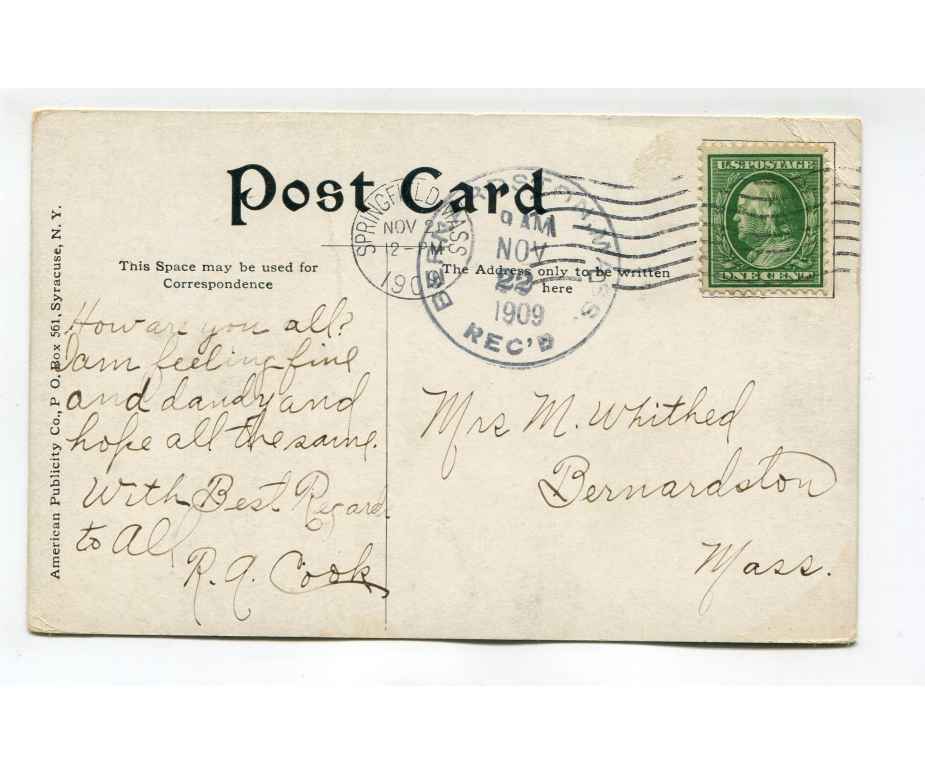 Post Card
This Space may be used for
Correspondence
The Address only to be written
here
American Publicity Co., P. O. Box 561, Syracuse, N. Y.
SPRINGFIELD MASS
NOV 2
12-PM
190
MASS.
9 AM
NOV
22
1909
REC'D
U.S. POSTAGE
ONE CENT
How are you all?
I am feeling fine
and dandy and
hope all the same.
With Best Regard
to All
R. A. Cook
Mrs M. Whithed
Bernardston
Mass.